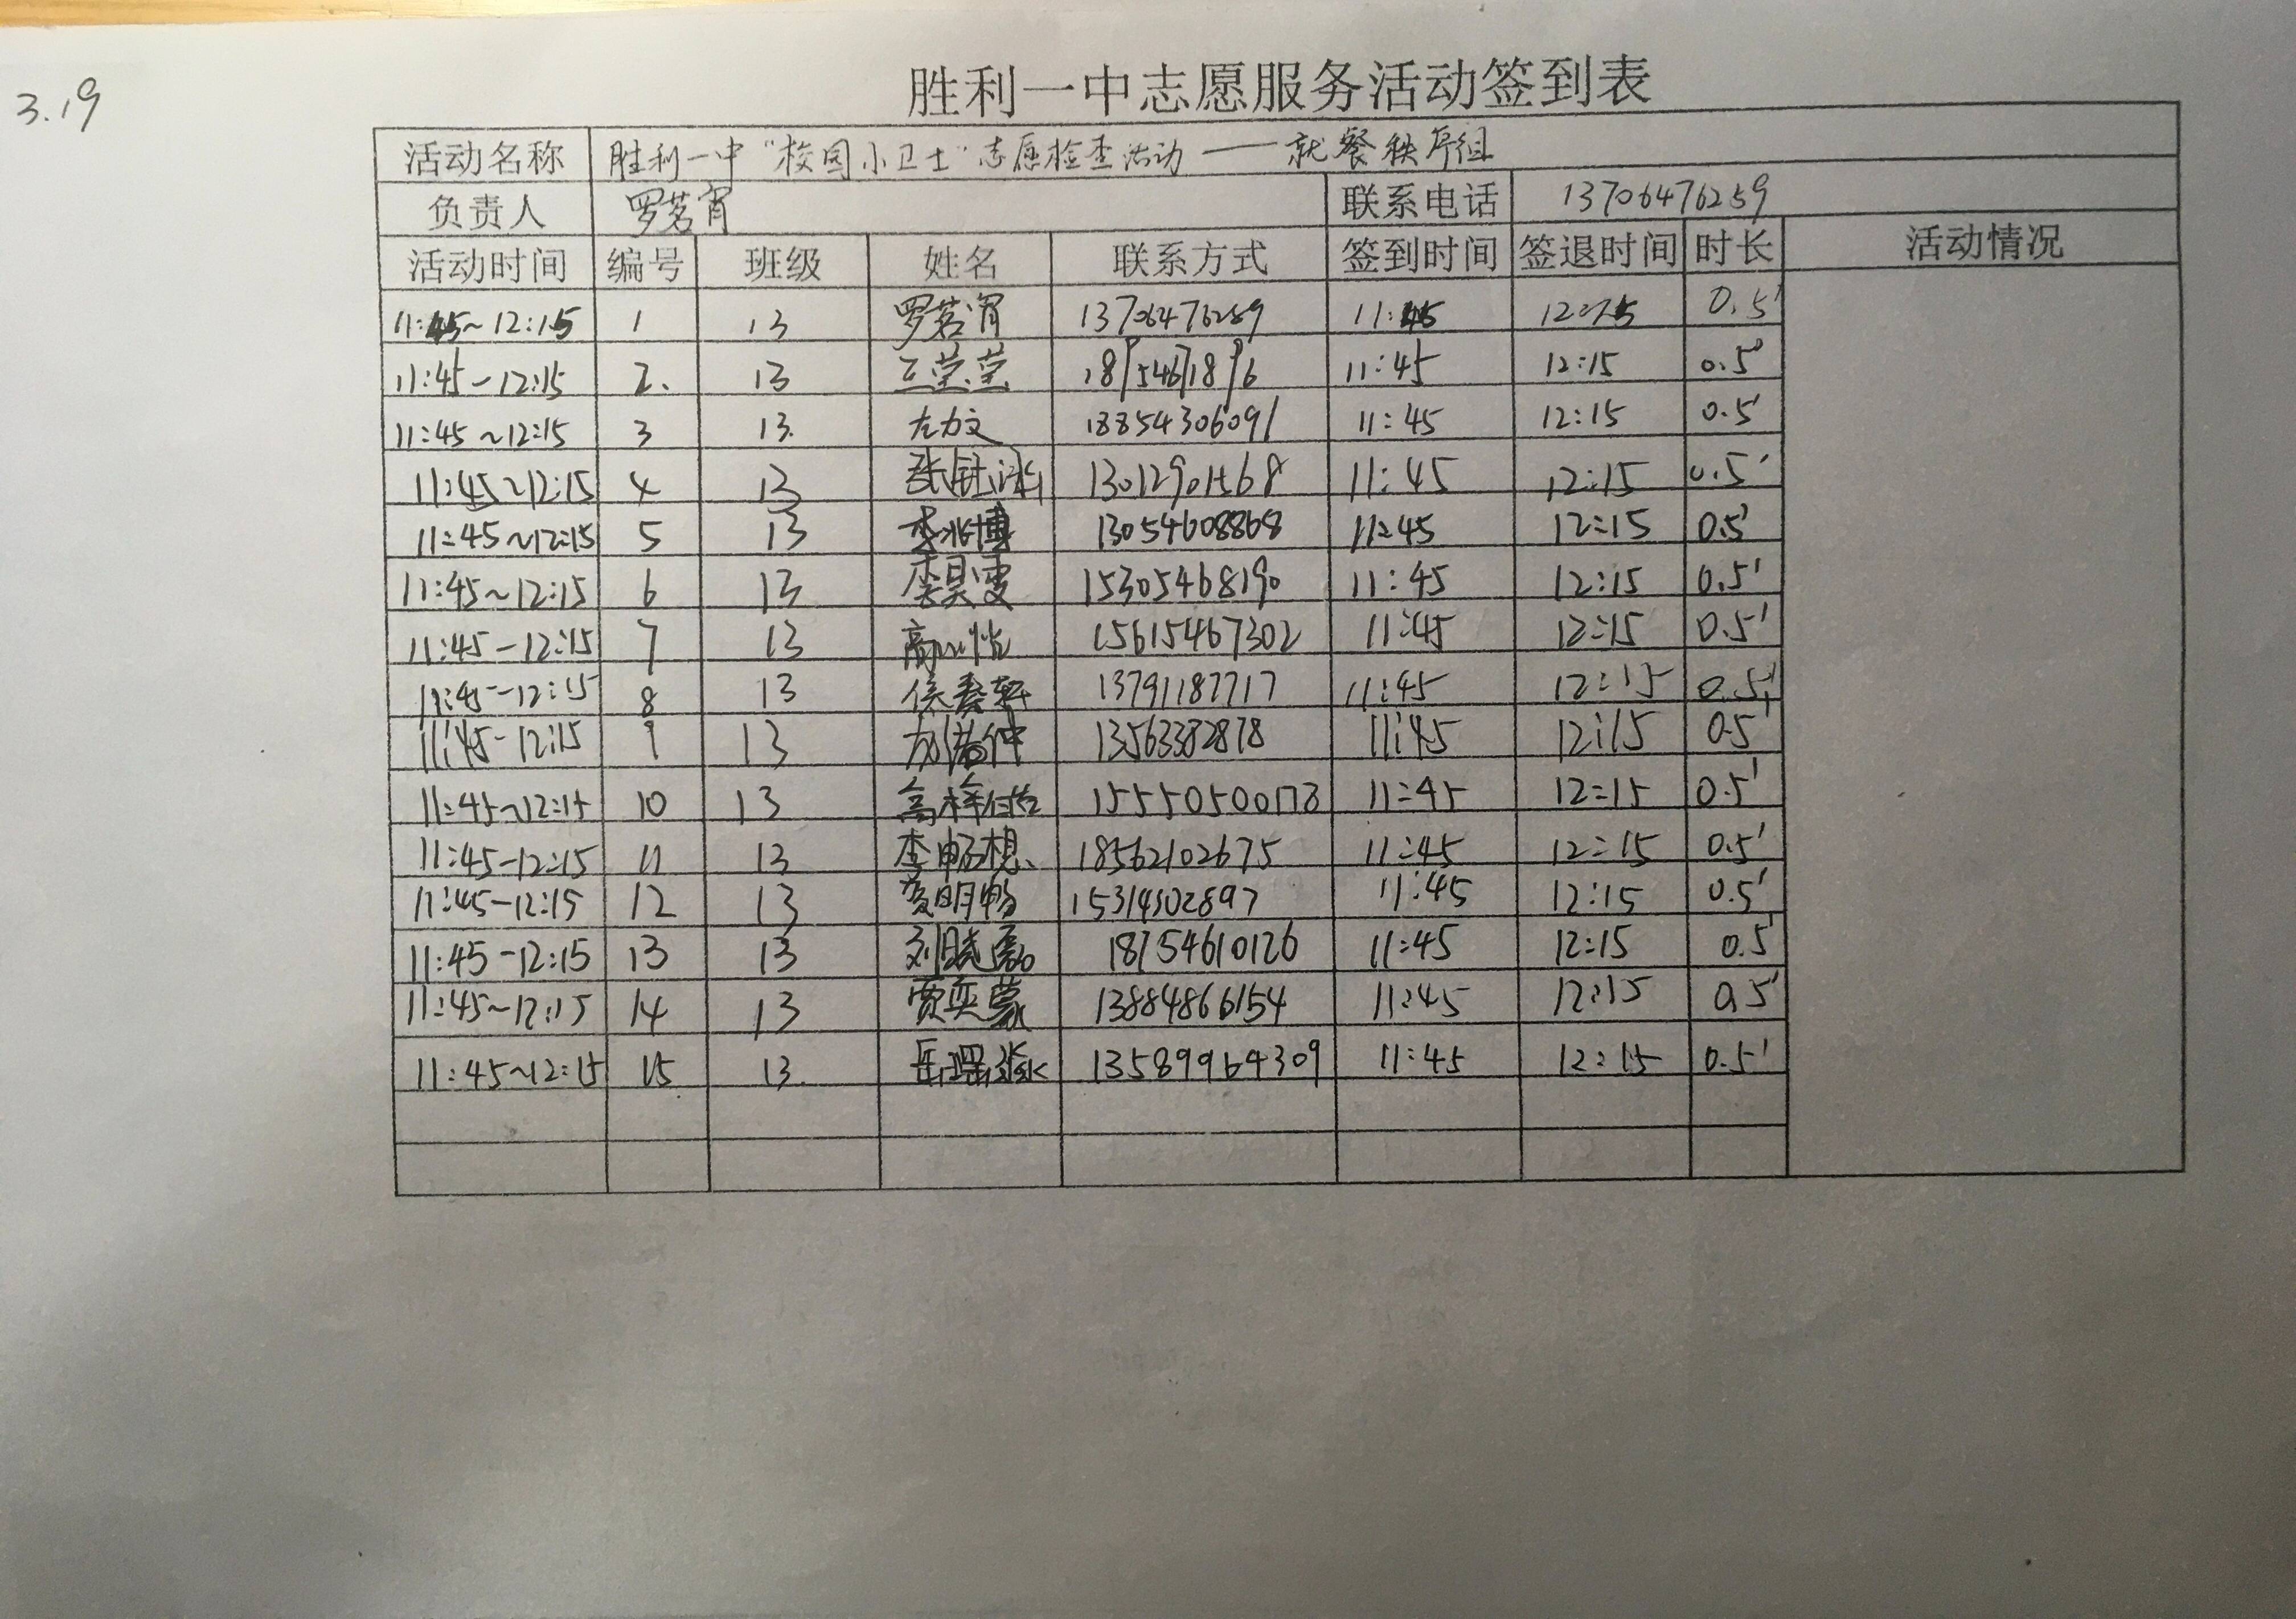 3.19
胜利一中志愿服务活动签到表
活动名称 胜利一中“校园小卫士”志愿检查活动——就餐秩序组
负责人 罗茗宵 联系电话 13706476259
活动时间 编号 班级 姓名 联系方式 签到时间 签退时间 时长 活动情况
11:45~12:15 1 13 罗茗宵 13706476259 11:45 12:15 0.5'
11:45-12:15 2. 13 11:45 12:15 0.5'
11:45~12:15 3 13. 左力文 18854306091 11:45 12:15 0.5'
11:45~12:15 4 13 13012901568 11:45 12:15 0.5'
11:45~12:15 5 13 李兆博 13054608868 11:45 12:15 0.5'
11:45~12:15 6 13 李昊雯 15305468190 11:45 12:15 0.5'
11:45-12:15 7 13 15615467302 11:45 12:15 0.5'
11:45-12:15 8 13 13791187717 11:45 12:15 0.5'
11:45-12:15 9 13 13563382878 11:45 12:15 0.5'
11:45~12:15 10 13 15550500178 11:45 12:15 0.5'
11:45-12:15 11 13 李畅想 18562102675 11:45 12:15 0.5'
11:45-12:15 12 13 15314302897 11:45 12:15 0.5'
11:45-12:15 13 13 18754610126 11:45 12:15 0.5'
11:45~12:15 14 13 贾奕蒙 13884866154 11:45 12:15 0.5'
11:45~12:15 15 13. 13589964309 11:45 12:15 0.5'